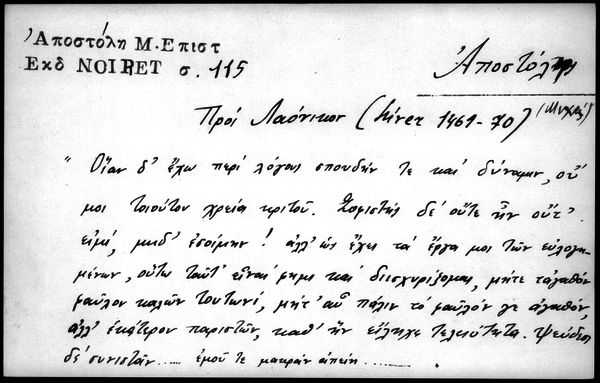 Ἀποστόλη Μ. Επιστ
Εκδ NOIRET σ. 115
Ἀποστόλης
(Μιχαὴλ)
Πρὸς Λαόνικον (hiver 1461-70)
"Οἵαν δ' ἔχω περὶ λόγους σπουδήν τε καὶ δύναμιν, οὔ
μοι τοιούτου χρεία κριτοῦ. Σοφιστὴς δὲ οὔτε ἦν οὔτ'
εἰμί, μηδ' ἐσοίμην! ἀλλ' ὡς ἔχει τὰ ἔργα μοι τῶν εὐλογη-
μένων, οὕτω ταῦτ' εἶναί φημι καὶ διισχυρίζομαι, μήτε τἀγαθὸν
φαῦλον καλῶν τουτωνί, μήτ' αὖ πάλιν τὸ φαῦλόν γε ἀγαθόν,
ἀλλ' ἑκάτερον παριστῶν, καθ' ἣν εἴληχε τελειότητα. Ψεύδεσι
δὲ συνιστᾶν ..... ἐμοῦ τε μακρὰν ἀπείη ........